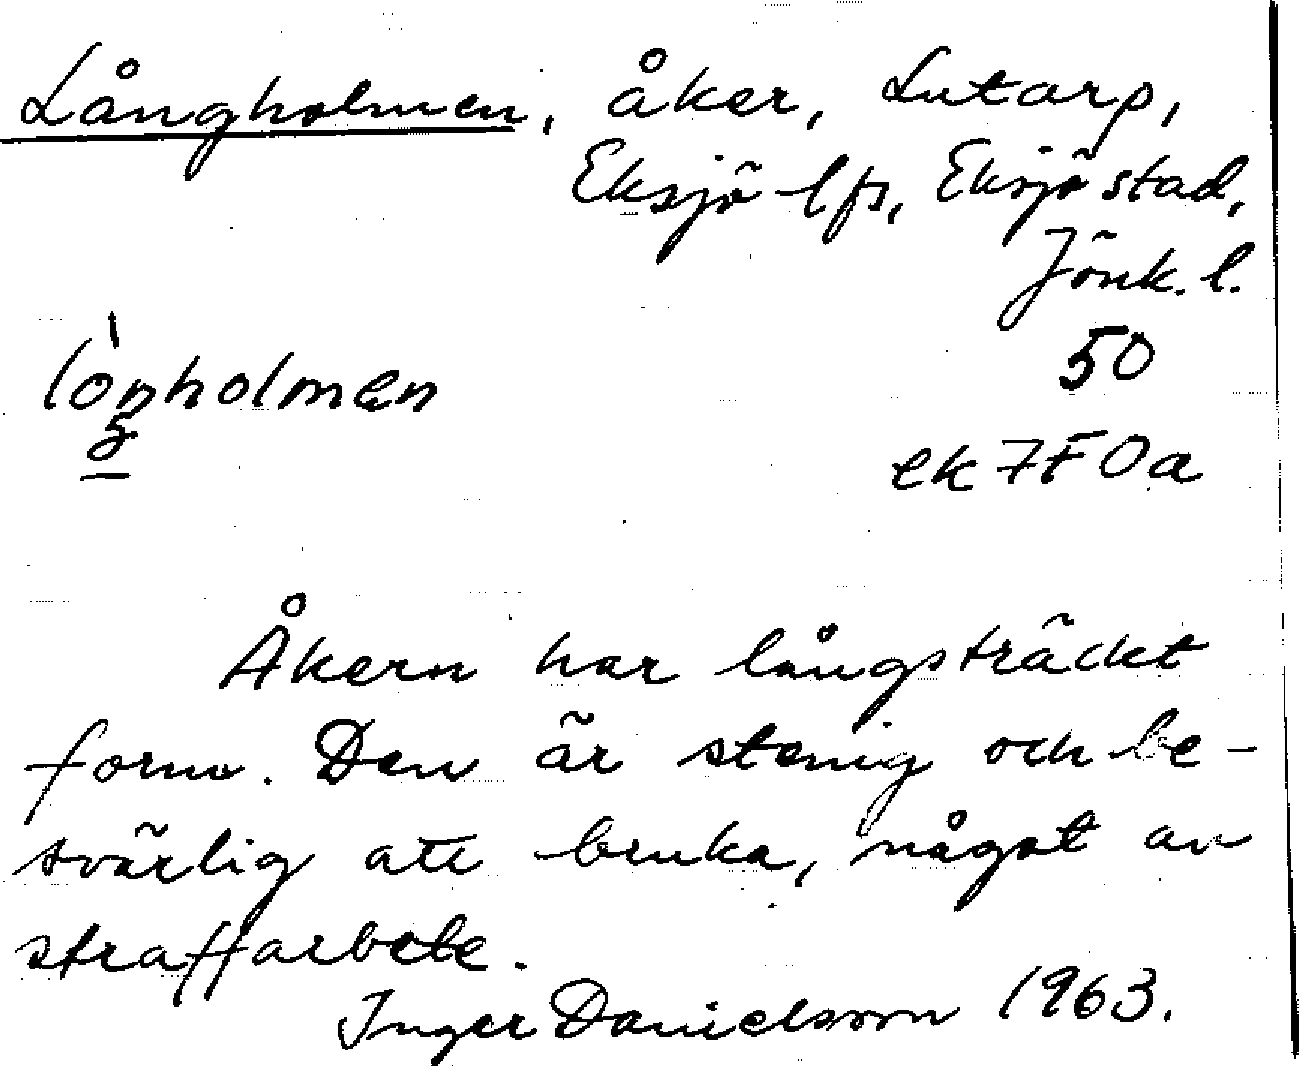 Långholmen, åker, Lutarp,
Eksjö lfs, Eksjö stad,
Jönk. l.
50
ek 7F0a
Åkern har långsträckt
form. Den är stenig och be-
svärlig att bruka, något av
straffarbete.
Inger Danielsson 1963.